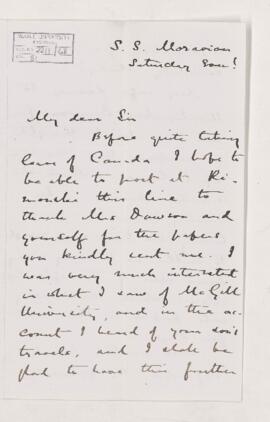 S. S. Moravian
Saturday Eve!
My dear Sir
Before quite taking
leave of Canada I hope to
be able to post at Ri-
mouski this line to
thank Mrs Dawson and
yourself for the papers
you kindly sent me. I
was very much interested
in what I saw of McGill
University, and in the ac-
count I heard of your son's
travels, and I shall be
glad to have this further